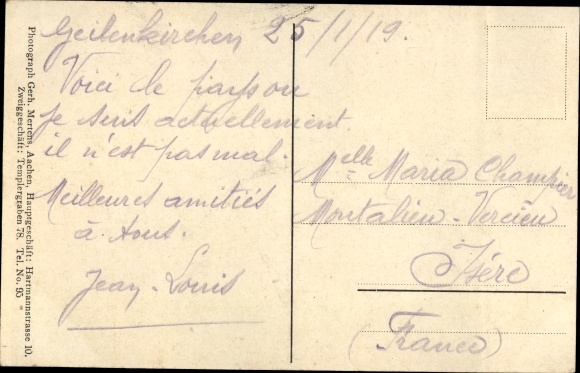 Geilenkirchen 25/1/19.
Voici le pays ou
je suis actuellement.
il n'est pas mal.
Meilleures amitiés
à tous.
Jean-Louis
Melle Maria Champier
Montalieu-Vercieu
Isére
(France)
Photograph Gerh. Mertens, Aachen, Hauptgeschäft: Hartmannstrasse 10.
Zweiggeschäft: Templergraben 78. Tel. No. 95